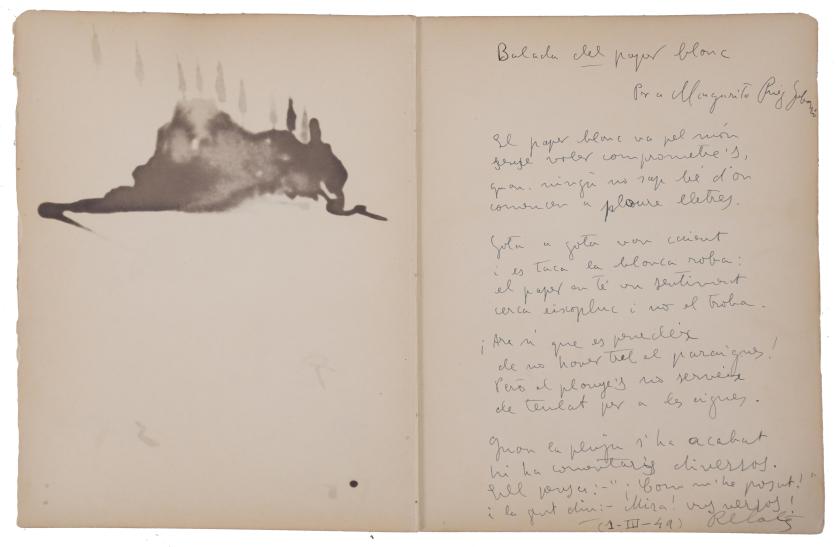 Balada del paper blanc
Per a Margarita Puig
El paper blanc va pel món
sense voler comprometre's,
quan ningú no sap bé d'on
comencen a ploure lletres.
Gota a gota van caient
i es taca la blanca roba:
el paper en té un sentiment
cerca aixopluc i no el troba.
¡Ara sí que es penedeix
de no haver dut el paraigues!
Però el plànye's no serveix
de teulat per a les aigues.
Quan la pluja s'ha acabat
hi ha comentaris diversos.
Ell pensa: -"¡Com m'he posat!"
i la gent diu: - Mira! uns versos!
(1-III-49)